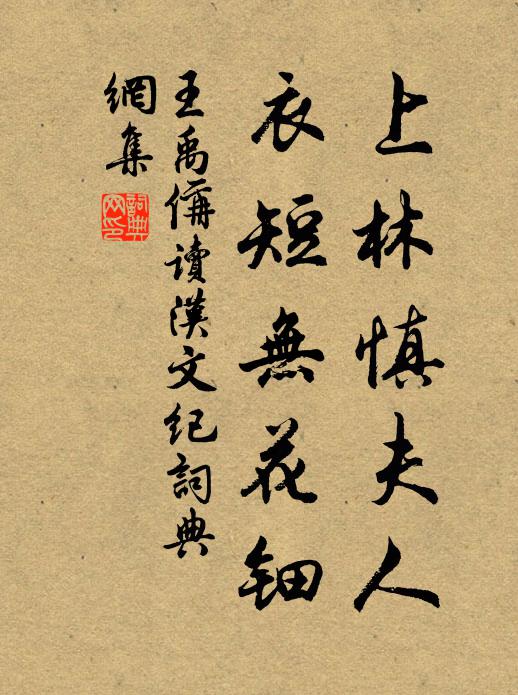 上林慎夫人
衣短無花鈿
王禹偁讀漢文紀詞典
網集
詞典
网印